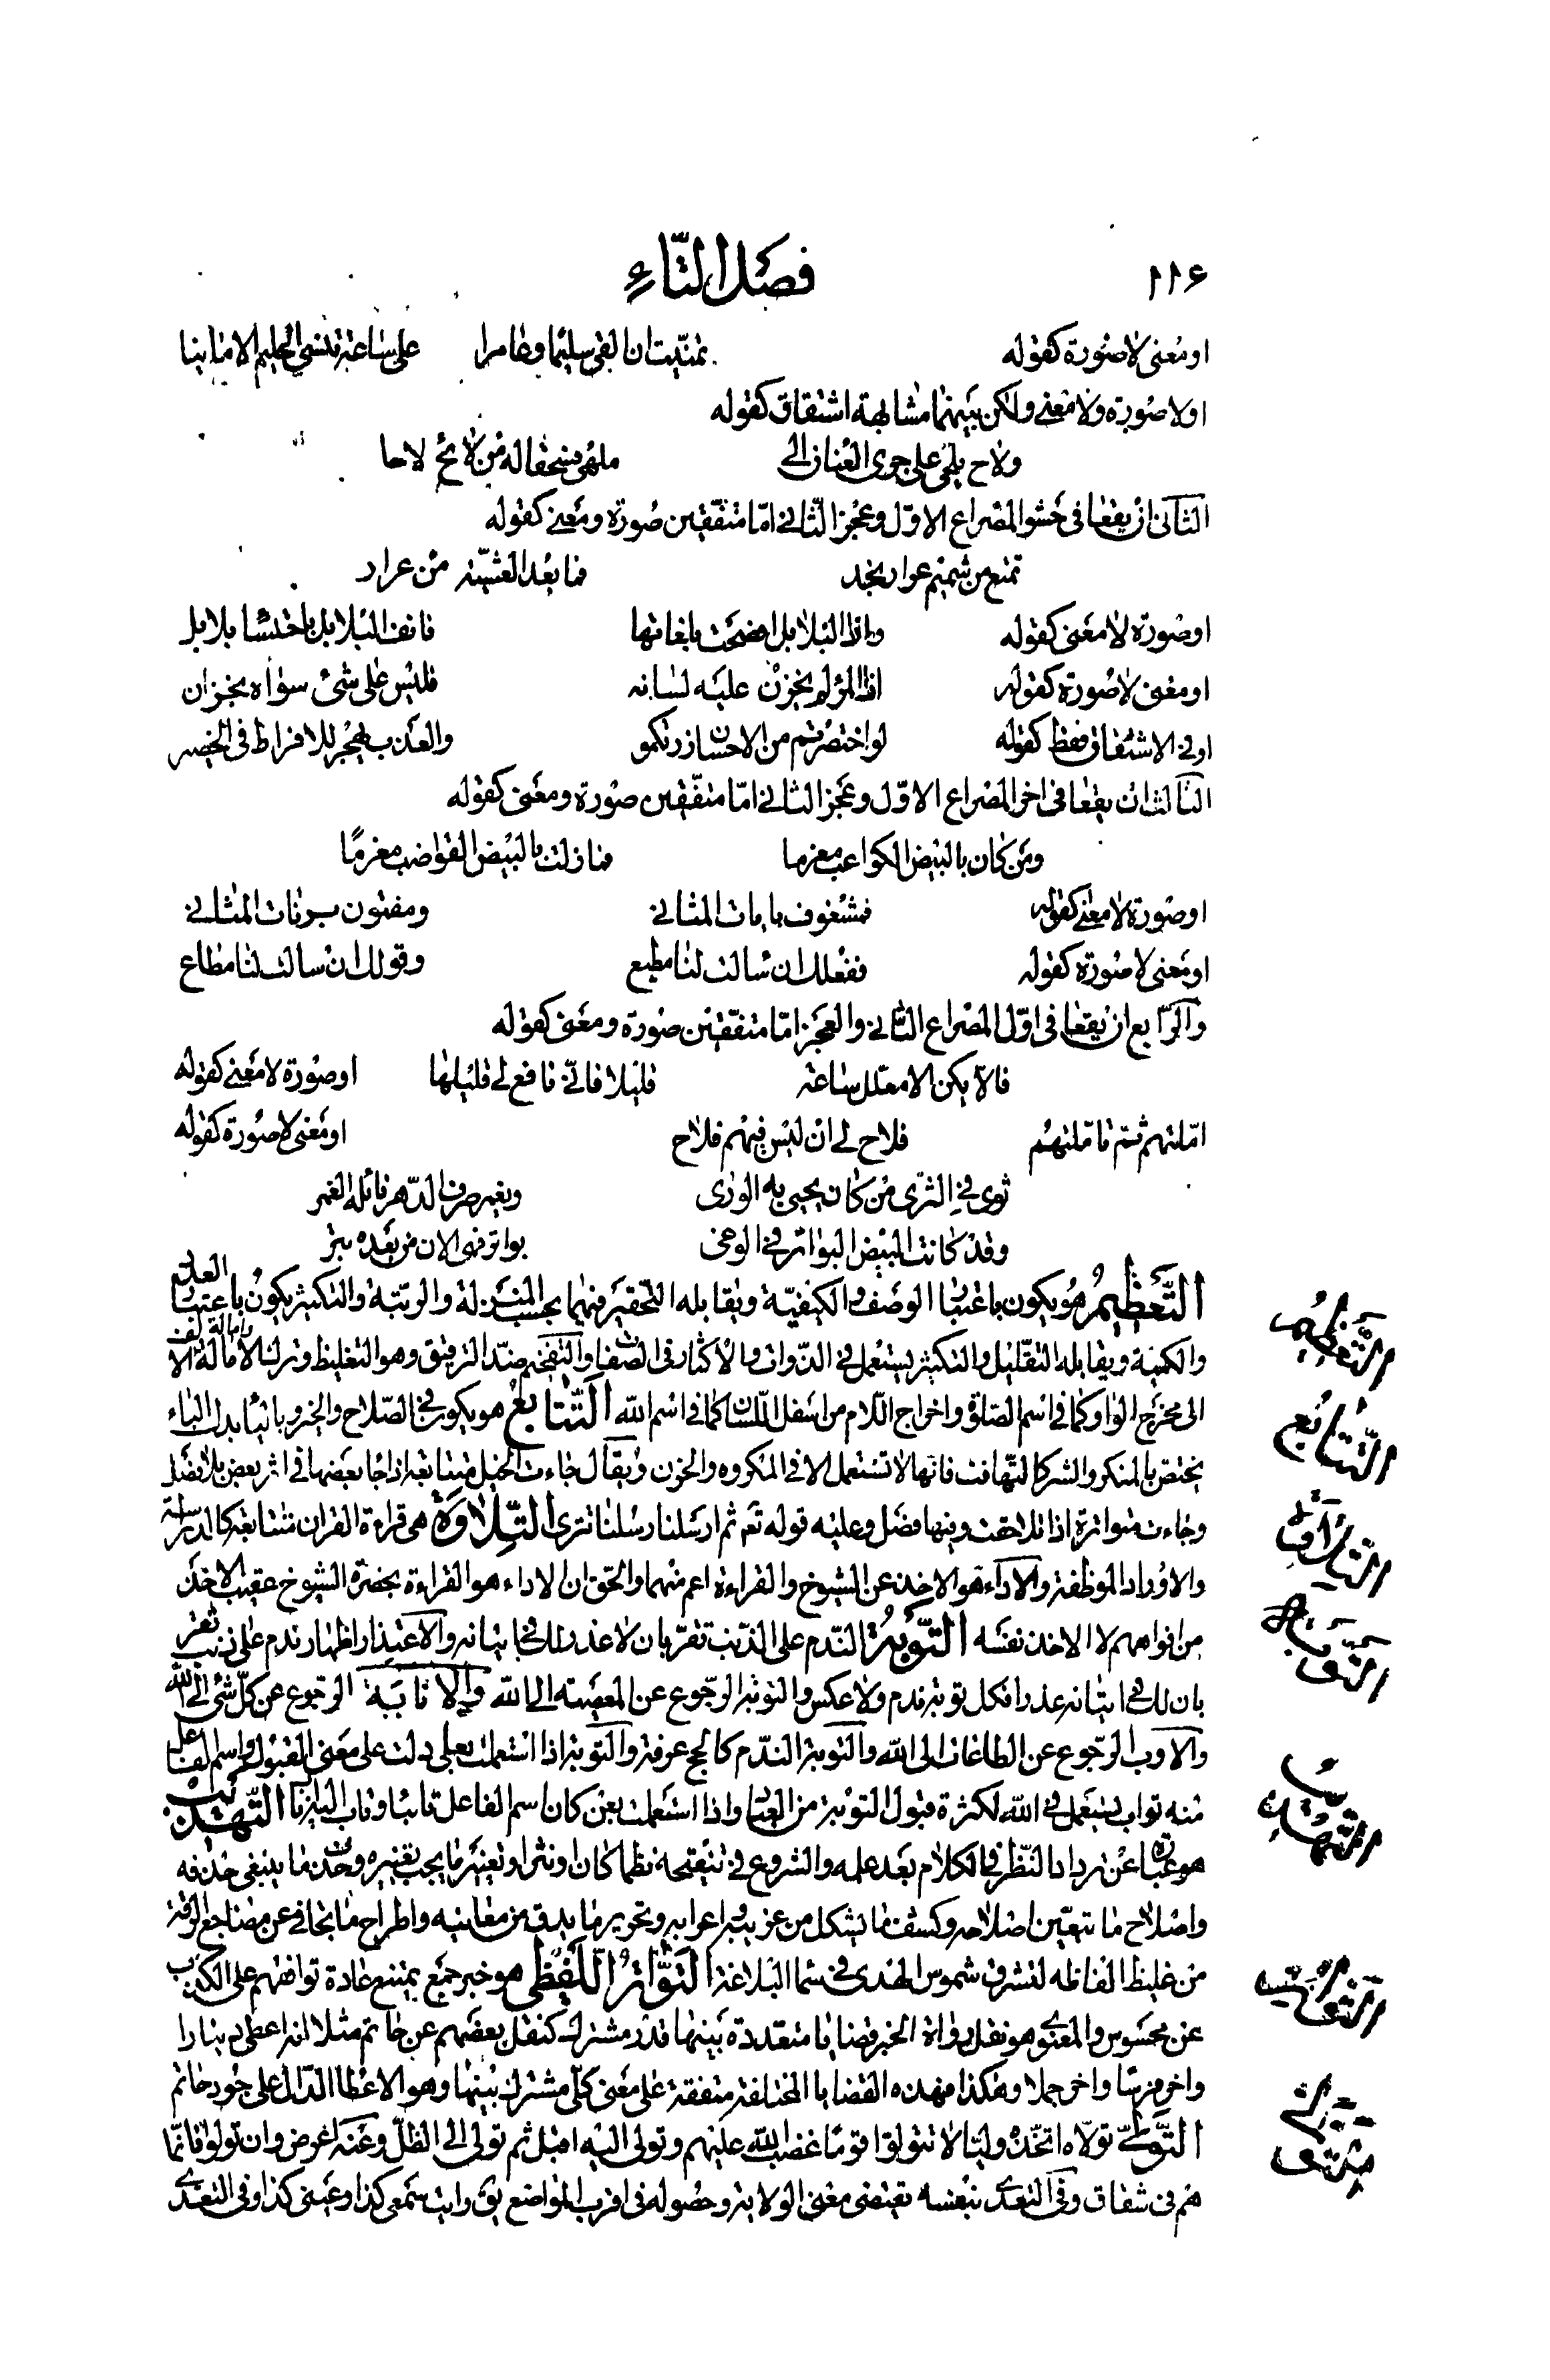 ١١۶ فصل التاء
او معنى لا صورة كقوله تمنيت ان القى سليما وعامرا على ساعة تنسى الحليم الامانيا
او لا صورة ولا معنى ولكن بينهما مشابهة اشتقاق كقوله
ولاح يلحى على جرى العنان الى ملهى فسحقا له من لائح لاحا
الثانى ان يقعا فى حشو المصراع الاول وعجز الثانى اما متفقين صورة ومعنى كقوله
تمتع من شميم عرار نجد فما بعد العشية من عرار
او صورة لا معنى كقوله واذا البلابل افصحت بلغاتها فانف البلابل باحتساء بلابل
او معنى لا صورة كقوله اذا المرء لم يخزن عليه لسانه فليس على شئ سواه بخزان
او فى الاشتقاق فقط كقوله لو اختصرتم من الاحسان زرتكمو والعذب يهجر للافراط فى الخصر
الثالث ان يقعا فى اخر المصراع الاول وعجز الثانى اما متفقين صورة ومعنى كقوله
ومن كان بالبيض الكواعب مغرما فما زلت بالبيض القواضب مغرمًا
او صورة لا معنى كقوله فمشغوف بايات المثانى ومفتون برنات المثانى
او معنى لا صورة كقوله ففعلك ان سالت لنا مطيع وقولك ان سالت لنا مطاع
والرابع ان يقعا فى اول المصراع الثانى والعجز اما متفقين صورة ومعنى كقوله
فالا يكن الا معلل ساعة قليلا فانى نافع لى قليلها او صورة لا معنى كقوله
املتهم ثم تاملتهم فلاح لى ان ليس فيهم فلاح او معنى لا صورة كقوله
ثوى فى الثرى من كان يحيى به الورى ويغمر صرف الدهر نائله الغمر
وقد كانت البيض البواتر فى الوغى بواتر فهى الان من بعده بتر
التعظيم هو يكون باعتبار الوصف والكيفية ويقابله التحقير فيهما بحسب المنزلة والرتبة والتكثير يكون باعتبار العدد
والكمية ويقابله التقليل والتكثير يستعمل فى الذوات والاكثار فى الصفات والتفخيم ضد الترقيق وهو التغليظ وترك الامالة وامالة الالف
الى مخرج الواو كما فى اسم الصلوة واخراج اللام من اسفل اللسان كما فى اسم الله التتابع هو يكون فى الصلاح والخير وبالياء بدل الباء
يختص بالمنكر والشر كالتهافت فانها لا تستعمل الا فى المكروه والحزن ويقال جاءت الخيل متتابعة اذا جا بعضها فى اثر بعض بلا فصل
وجاءت متواترة اذا تلاحقت وفيها فصل وعليه قوله تع ثم ارسلنا رسلنا تترى التلاوة هى قراءة القران متتابعة كالدراسة
والاوراد الموظفة والاداء هو الاخذ عن الشيوخ والقراءة اعم منهما والحق ان الاداء هو القراءة بحضرة الشيوخ عقيب الاخذ
من افواههم لا الاخذ نفسه التوبة الندم على الذنب تقر بان لا عذر لك فى اتيانه والاعتذار اظهار ندم على ذنب تقر
بان لك فى اتيانه عذرا فكل توبة ندم ولا عكس والتوبة الرجوع عن المعصية الى الله والانابة الرجوع عن كل شئ الى الله
والاوب الرجوع عن الطاعات الى الله والتوبة الندم كالحج عرفة والتوبة اذا استعملت بعلى دلت على معنى القبول واسم الفاعل
منه تواب يستعمل فى الله لكثرة قبول التوبة من العباد واذا استعملت بعن كان اسم الفاعل تائبا وتاب اليه انا التهذيب
هو عبارة عن ترداد النظر فى الكلام بعد عمله والشروع فى تنقيحه نظما كان او نثرا وتغيير ما يجب تغييره وحذف ما ينبغى حذفه
واصلاح ما يتعين اصلاحه وكشف ما يشكل من غريبه واعرابه وتحرير ما يدق من معانيه واطراح ما تجافى عن مضاجع الرقة
من غليظ الفاظه لتشرق شموس الهدى فى سما البلاغة التواتر اللفظى هو خبر جمع يمتنع عادة توافقهم على الكذب
عن محسوس والمعنوى هو نقل رواة الخبر قضايا متعددة بينها قدر مشترك كنقل بعضهم عن حاتم مثلا انه اعطى دينارا
واخر فرسا واخر جملا وهكذا فهذه القضايا المختلفة متفقة على معنى كلى مشترك بينها وهو الاعطا الدال على جود حاتم
التولى تولاه اتخذه وليا لا تتولوا قوما غضب الله عليهم وتولى اليه اقبل ثم تولى الى الظل وعنه اعرض وان تولوا فانما
هم فى شقاق وفى التعدى بنفسه يقتضى معنى الولاية وحصوله فى اقرب المواضع يق وليت سمعى كذا وعينى كذا وفى التعدى
التعظيم
التتابع
التلاوة
التوبة
التهذيب